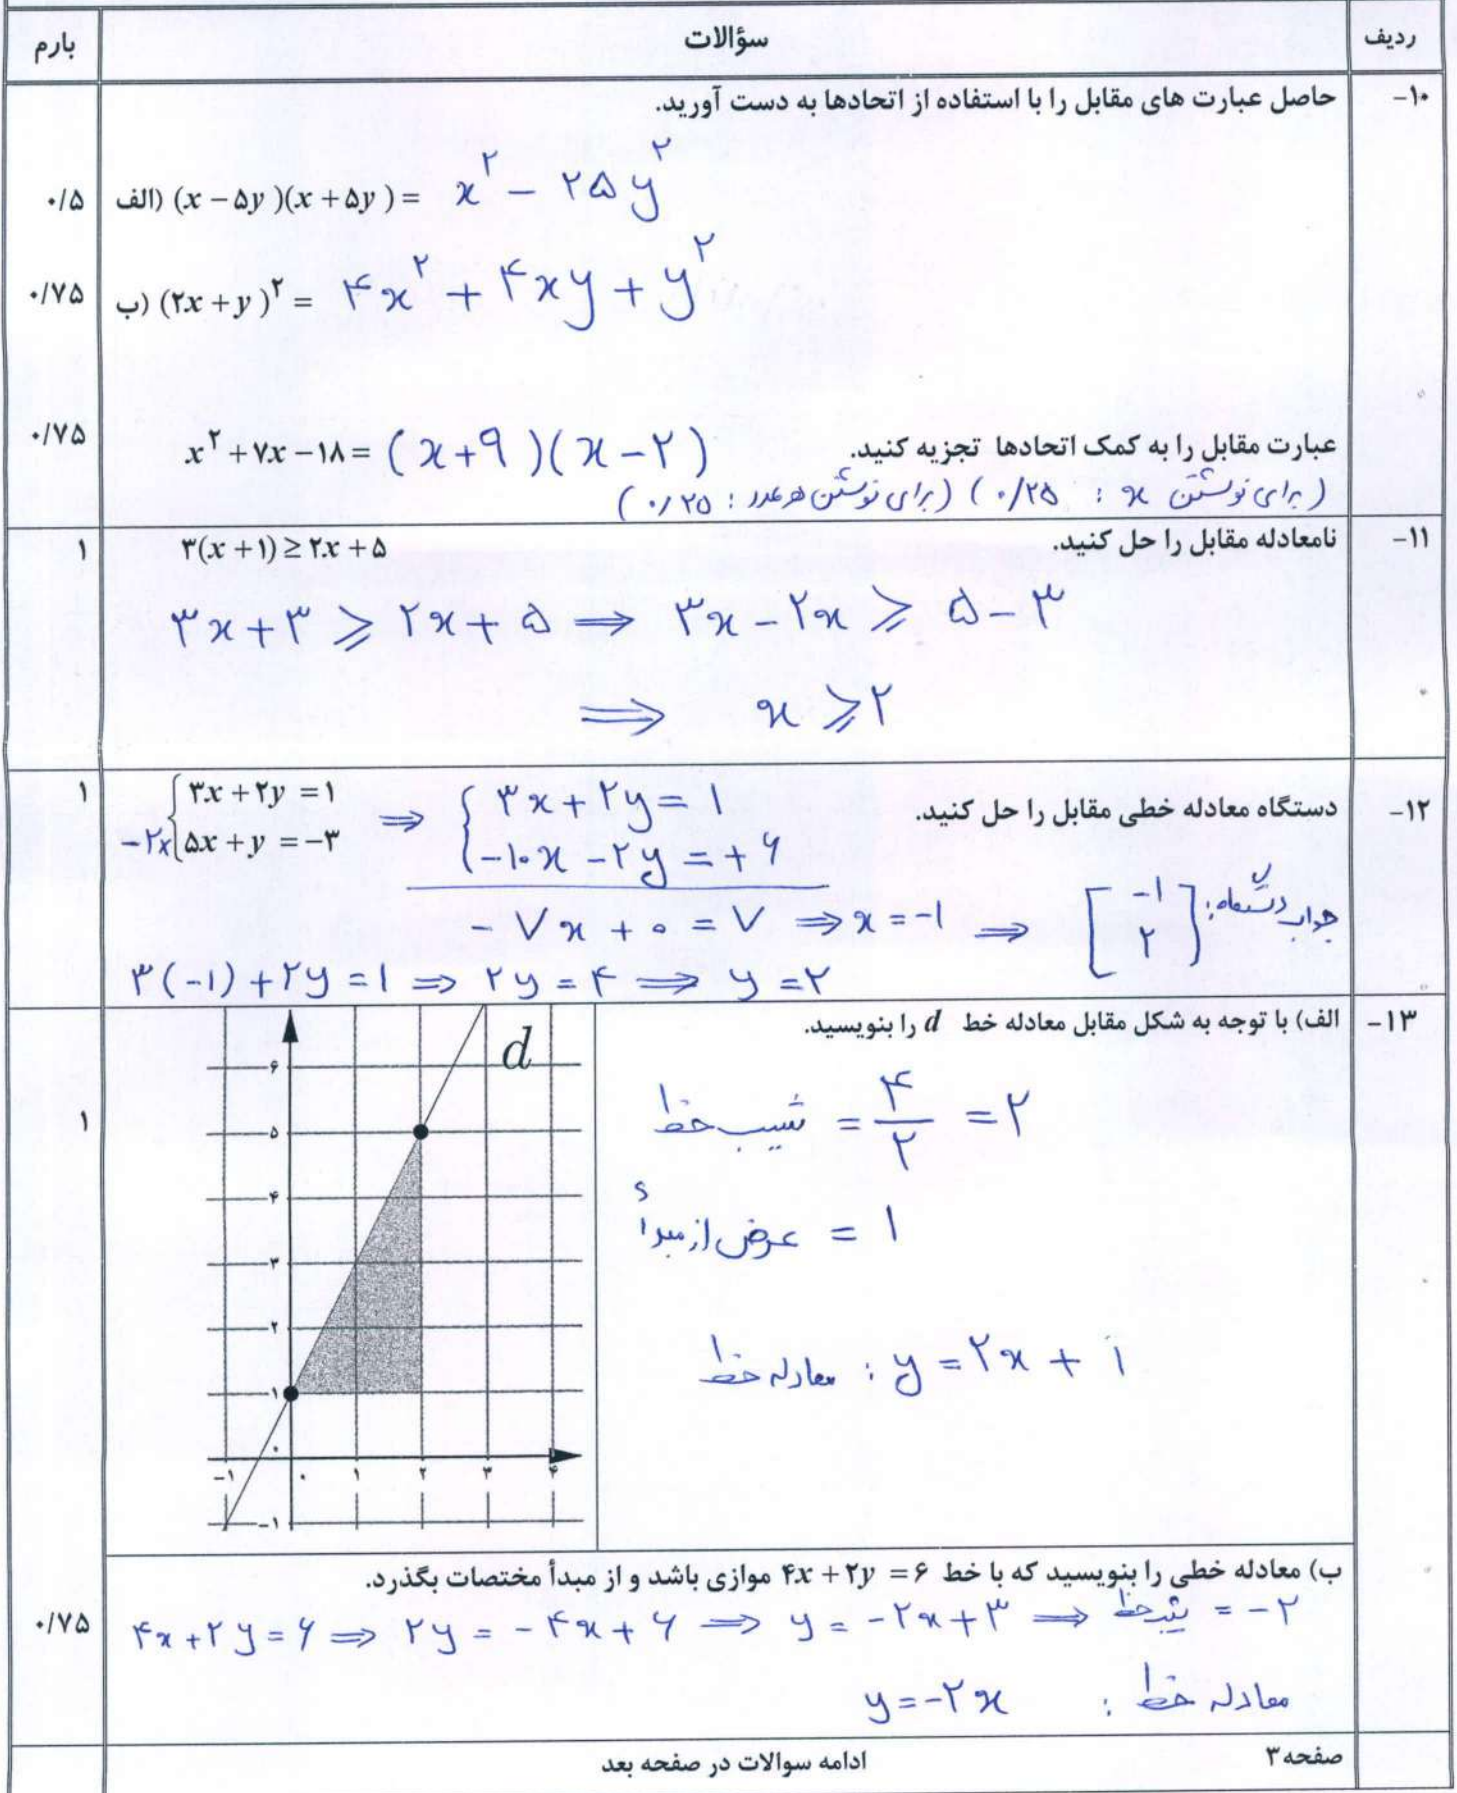 ردیف سؤالات بارم
۱۰- حاصل عبارت های مقابل را با استفاده از اتحادها به دست آورید.
الف) (x - ۵y)(x + ۵y) = x² - ۲۵y² ۰/۵
ب) (۲x + y)² = ۴x² + ۴xy + y² ۰/۷۵
عبارت مقابل را به کمک اتحادها تجزیه کنید. x² + ۷x - ۱۸ = (x+۹)(x-۲) ۰/۷۵
(برای نوشتن x : ۰/۲۵) (برای نوشتن هر عدد : ۰/۲۵)
۱۱- نامعادله مقابل را حل کنید. ۳(x + ۱) ≥ ۲x + ۵ ۱
۳x + ۳ ≥ ۲x + ۵ ⇒ ۳x - ۲x ≥ ۵ - ۳
⇒ x ≥ ۲
۱۲- دستگاه معادله خطی مقابل را حل کنید. ۱
{ ۳x + ۲y = ۱ ⇒ { ۳x + ۲y = ۱
-۲× { ۵x + y = -۳ { -۱۰x - ۲y = +۶
-۷x + ۰ = ۷ ⇒ x = -۱ ⇒ [-۱ ۲] جواب دستگاه:
۳(-۱) + ۲y = ۱ ⇒ ۲y = ۴ ⇒ y = ۲
۱۳- الف) با توجه به شکل مقابل معادله خط d را بنویسید. ۱
شیب خط = ۴/۲ = ۲
عرض از مبدأ = ۱
معادله خط : y = ۲x + ۱
d
۶
۵
۴
۳
۲
۱
۰
-۱ ۰ ۱ ۲ ۳ ۴
-۱
ب) معادله خطی را بنویسید که با خط ۴x + ۲y = ۶ موازی باشد و از مبدأ مختصات بگذرد. ۰/۷۵
۴x + ۲y = ۶ ⇒ ۲y = -۴x + ۶ ⇒ y = -۲x + ۳ ⇒ شیب خط = -۲
معادله خط : y = -۲x
صفحه ۳ ادامه سوالات در صفحه بعد